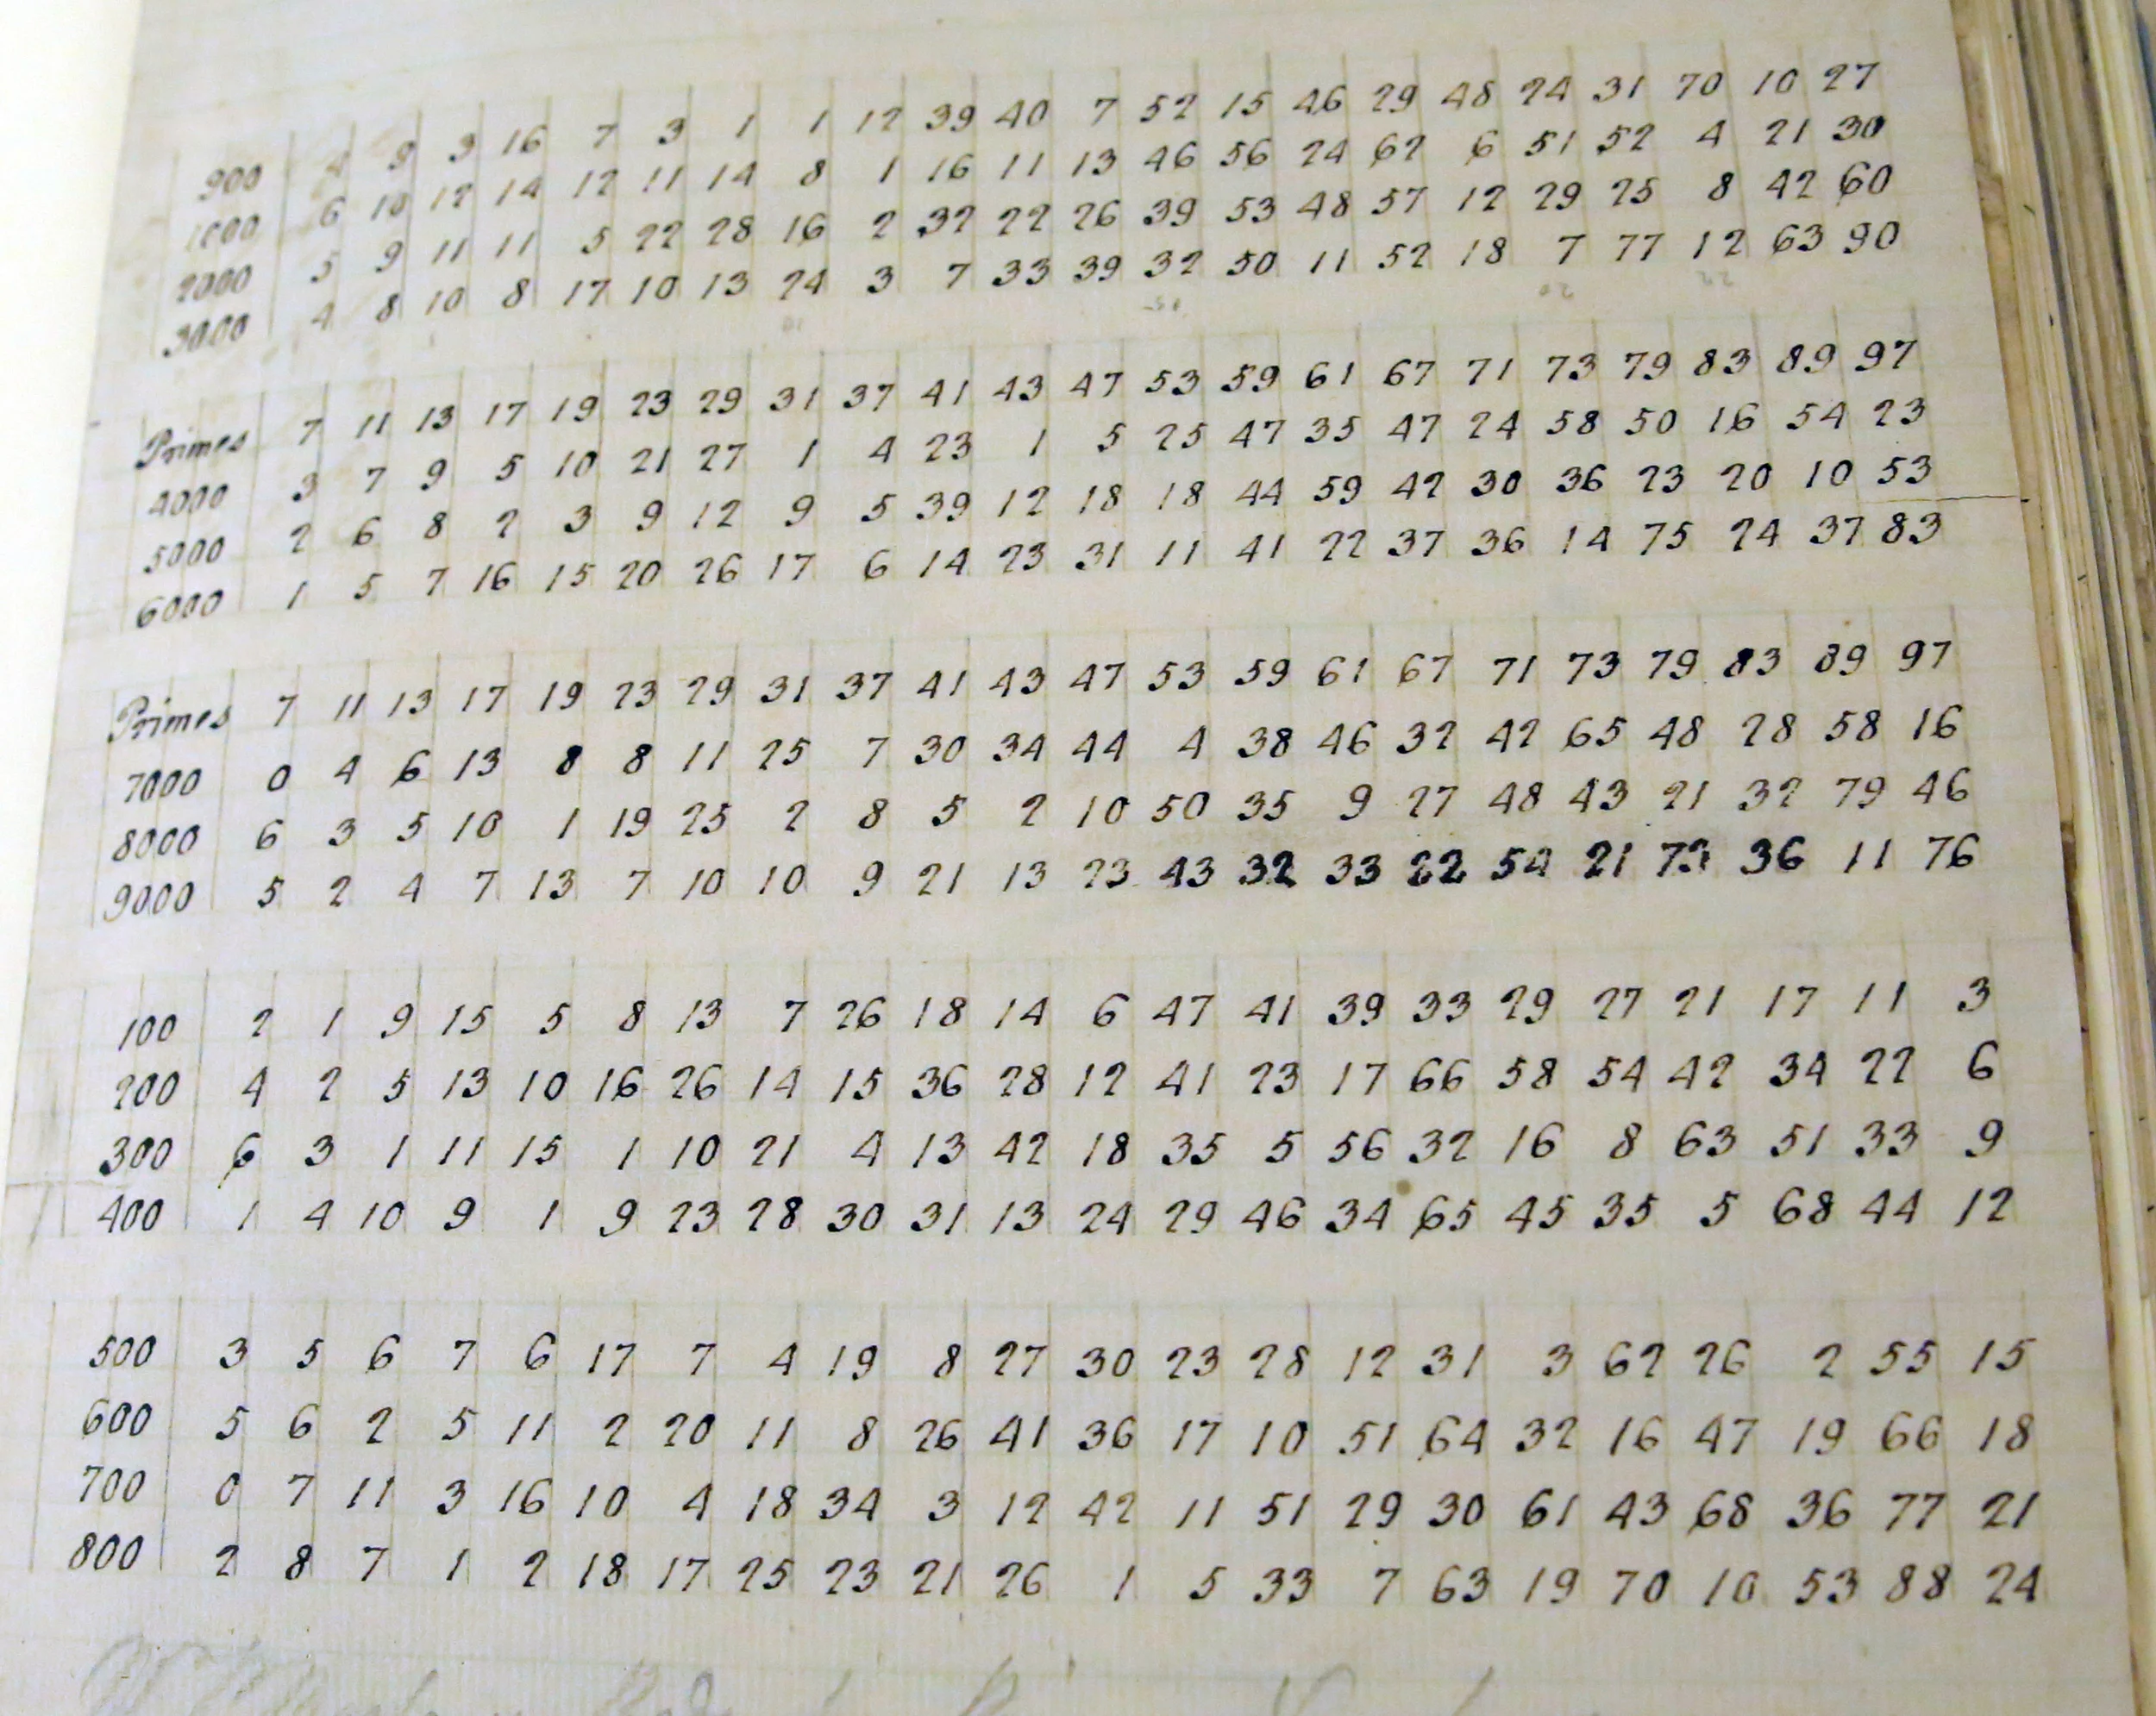 900 4 9 3 16 7 3 1 1 12 39 40 7 52 15 46 29 48 24 31 70 10 27
1000 6 10 12 14 12 11 14 8 1 16 11 13 46 56 24 62 6 51 52 4 21 30
2000 5 9 11 11 5 22 28 16 2 32 22 26 39 53 48 57 12 29 25 8 42 60
3000 4 8 10 8 17 10 13 24 3 7 33 39 32 50 11 52 18 7 77 12 63 90
Primes 7 11 13 17 19 23 29 31 37 41 43 47 53 59 61 67 71 73 79 83 89 97
4000 3 7 9 5 10 21 27 1 4 23 1 5 25 47 35 47 24 58 50 16 54 23
5000 2 6 8 2 3 9 12 9 5 39 12 18 18 44 59 42 30 36 23 20 10 53
6000 1 5 7 16 15 20 26 17 6 14 23 31 11 41 22 37 36 14 75 24 37 83
Primes 7 11 13 17 19 23 29 31 37 41 43 47 53 59 61 67 71 73 79 83 89 97
7000 0 4 6 13 8 8 11 25 7 30 34 44 4 38 46 32 42 65 48 28 58 16
8000 6 3 5 10 1 19 25 2 8 5 2 10 50 35 9 27 48 43 21 32 79 46
9000 5 2 4 7 13 7 10 10 9 21 13 23 43 32 33 22 54 21 73 36 11 76
100 2 1 9 15 5 8 13 7 26 18 14 6 47 41 39 33 29 27 21 17 11 3
200 4 2 5 13 10 16 26 14 15 36 28 12 41 23 17 66 58 54 42 34 22 6
300 6 3 1 11 15 1 10 21 4 13 42 18 35 5 56 32 16 8 63 51 33 9
400 1 4 10 9 1 9 23 28 30 31 13 24 29 46 34 65 45 35 5 68 44 12
500 3 5 6 7 6 17 7 4 19 8 27 30 23 28 12 31 3 62 26 2 55 15
600 5 6 2 5 11 2 20 11 8 26 41 36 17 10 51 64 32 16 47 19 66 18
700 0 7 11 3 16 10 4 18 34 3 12 42 11 51 29 30 61 43 68 36 77 21
800 2 8 7 1 2 18 17 25 23 21 26 1 5 33 7 63 19 70 10 53 88 24